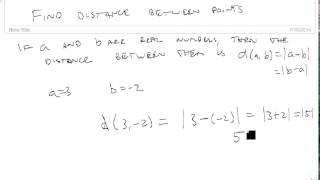 FIND DISTANCE BETWEEN POINTS
Note Title
IF a AND b ARE REAL NUMBERS, THEN THE
DISTANCE BETWEEN THEM IS d(a,b)=|a-b|
=|b-a|
a=3 b=-2
d(3,-2) = |3-(-2)| = |3+2|=|5|
5